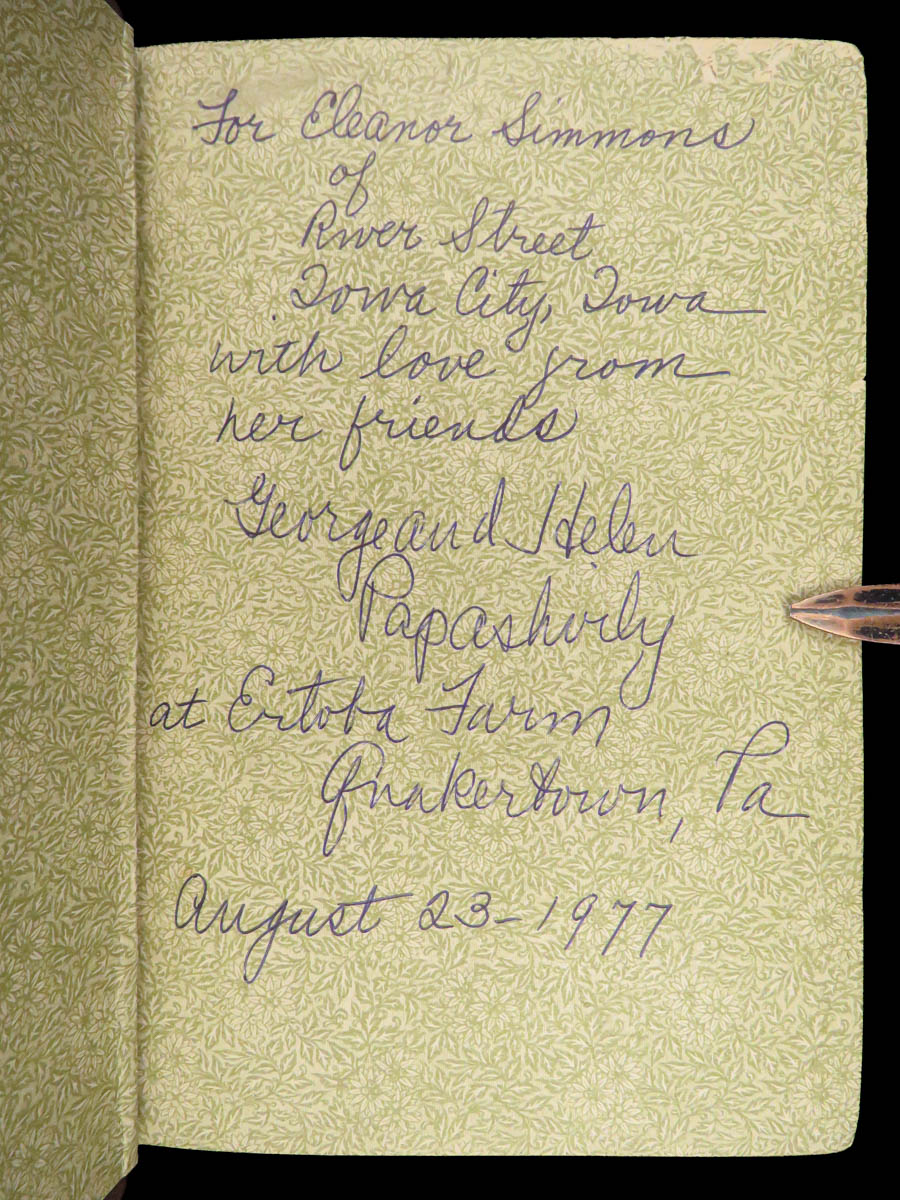 For Eleanor Simmons
of
River Street
Iowa City, Iowa
with love from
her friends
George and Helen
Papashvily
at Ertoba Farm
Quakertown, Pa
August 23-1977